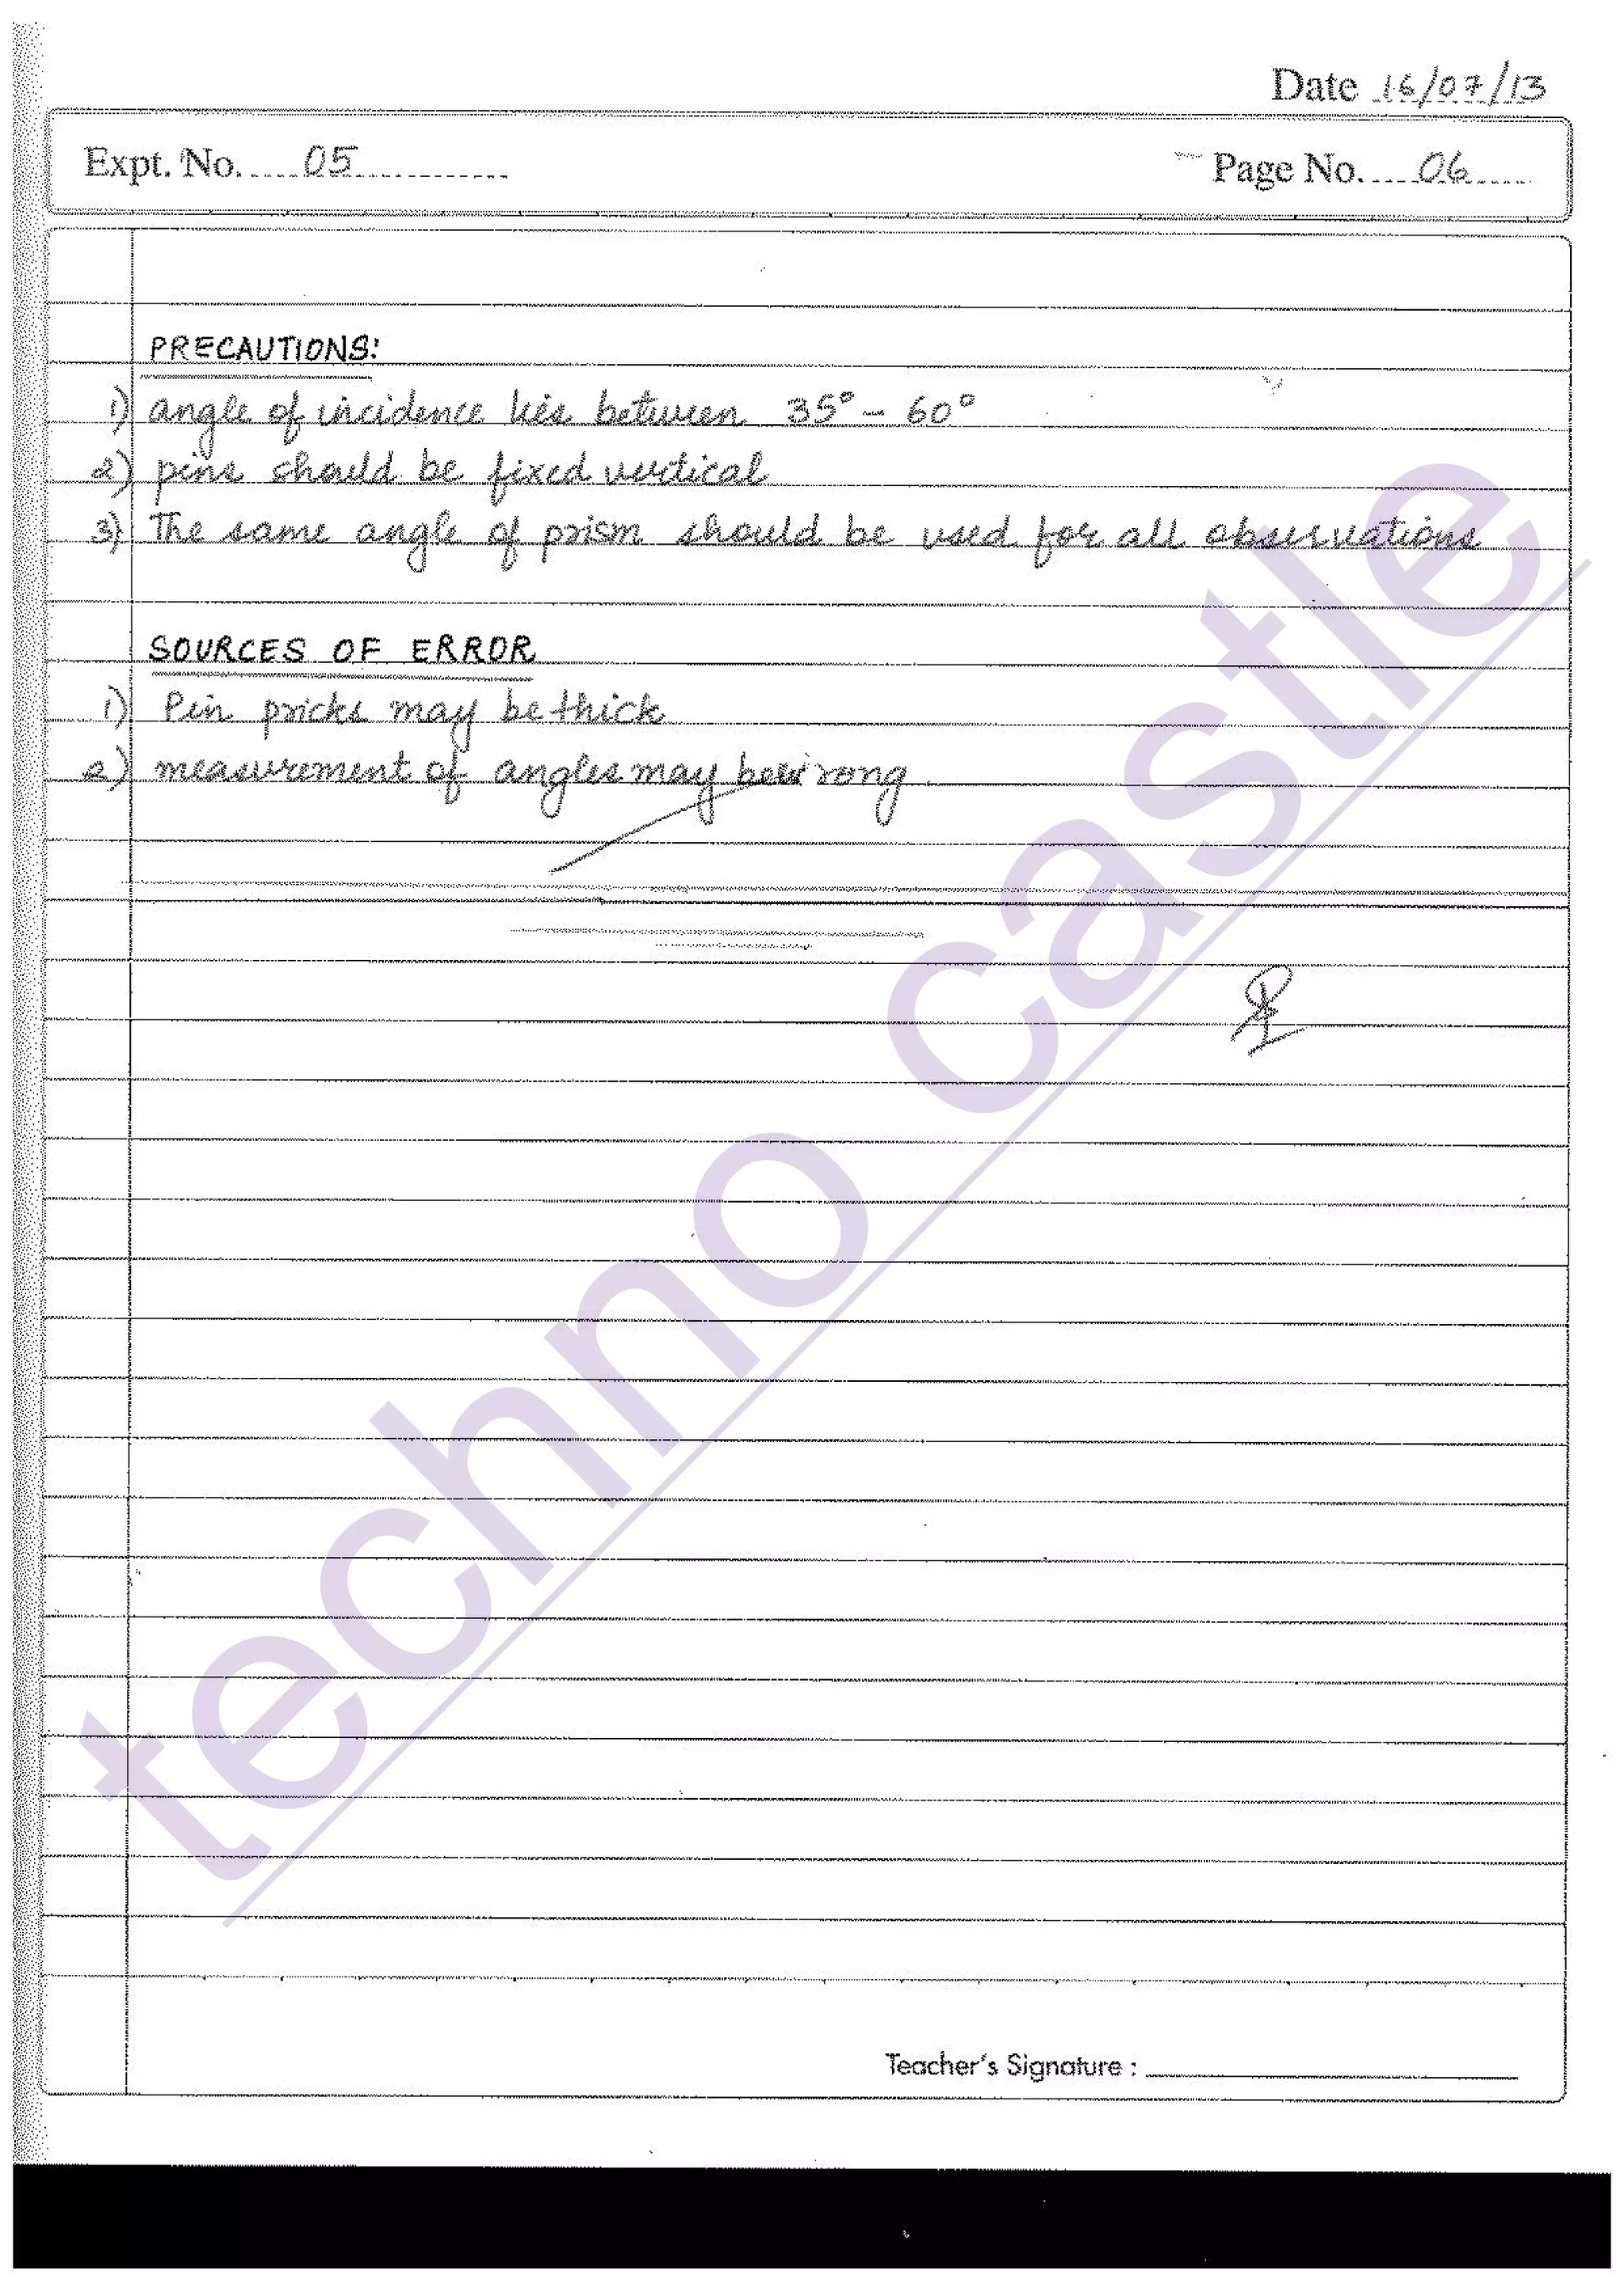 Date 16/07/13
Expt. No. 05
Page No. 06
PRECAUTIONS:
1) angle of incidence lies between 35° - 60°
2) pins should be fixed vertical
3) The same angle of prism should be used for all observations
SOURCES OF ERROR
1) Pin pricks may be thick
2) measurement of angles may be wrong.
techno castle
Teacher's Signature :